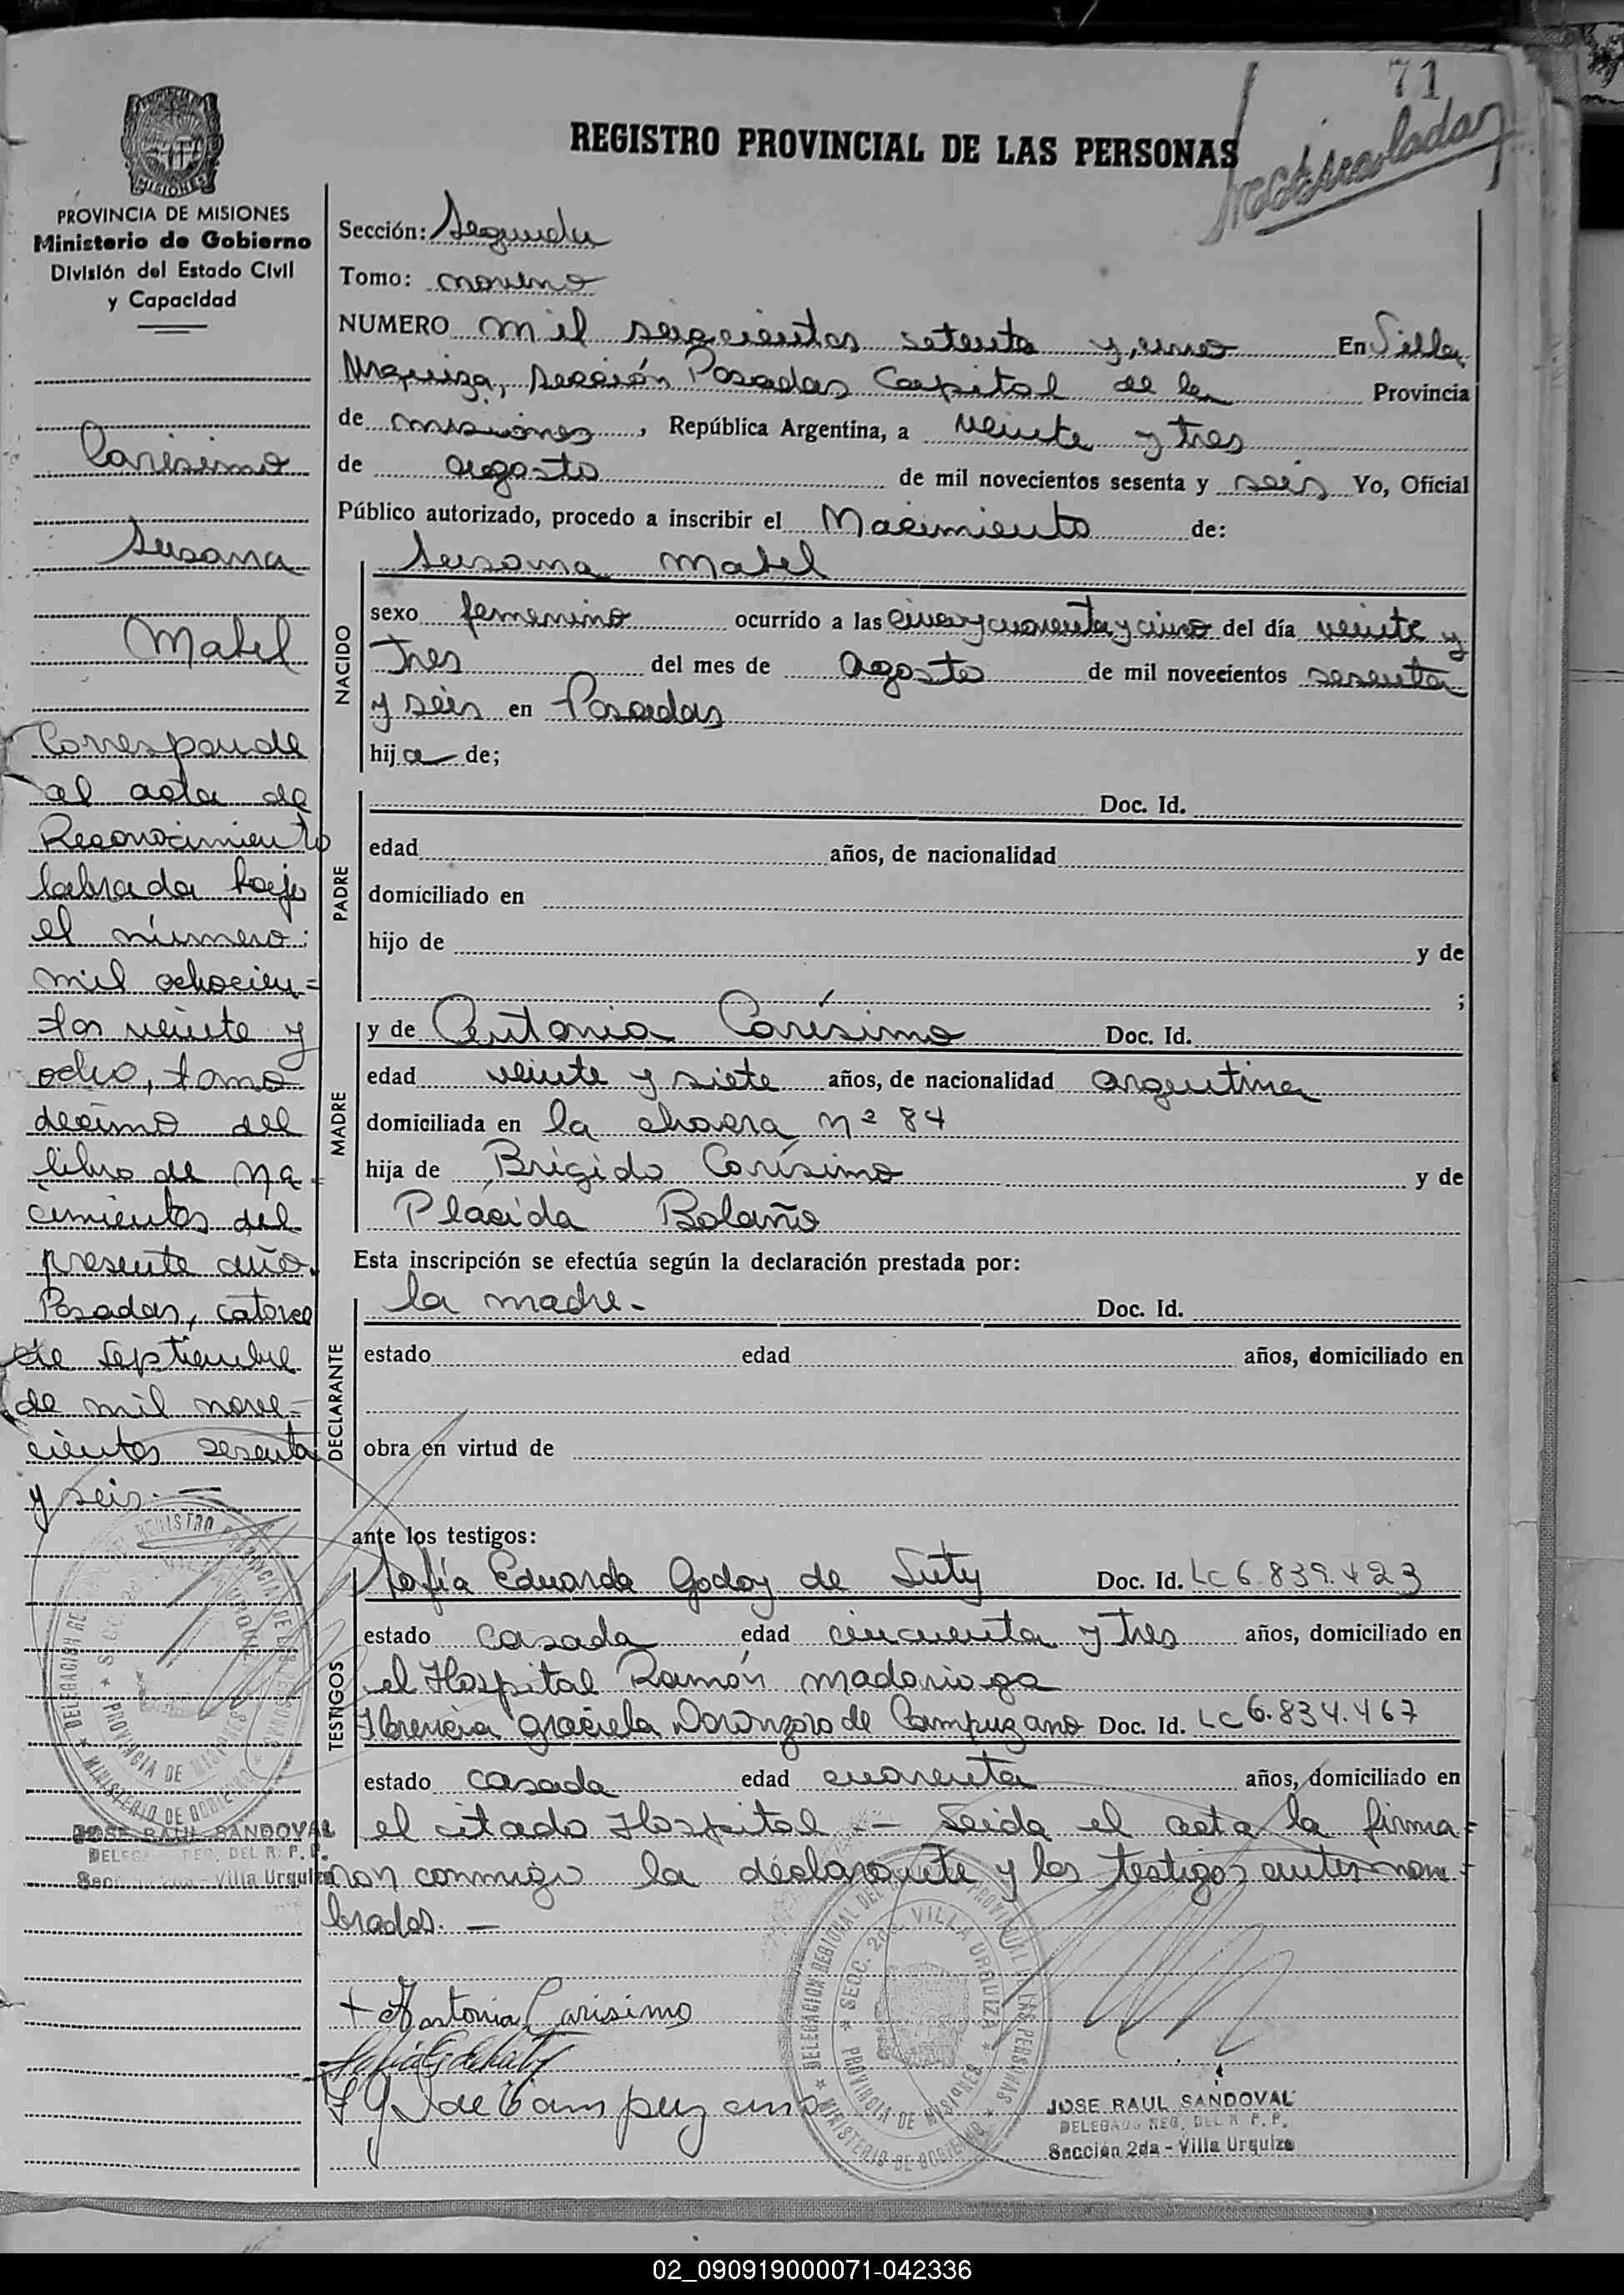 71
REGISTRO PROVINCIAL DE LAS PERSONAS
MISIONES
PROVINCIA DE MISIONES
Ministerio de Gobierno
División del Estado Civil
y Capacidad
Carísimo
Susana
Mabel
Corresponde
al acta de
Reconocimiento
labrada bajo
el número:
mil ochocien=
tos veinte y
ocho, tomo
décimo del
libro de na-
cimientos del
presente año.
Posadas, catorce
de septiembre
de mil nove-
cientos sesenta
y seis. —
JOSE RAUL SANDOVAL
DELEGADO REG. DEL R. P. P.
Sección 2da - Villa Urquiza
Sección: Segunda
Tomo: noveno
NUMERO mil seiscientos setenta y uno En Villa
Urquiza, sección Posadas Capital de la Provincia
de misiones, República Argentina, a veinte y tres
de agosto de mil novecientos sesenta y seis Yo, Oficial
Público autorizado, procedo a inscribir el Nacimiento de:
Susana Mabel
NACIDO
sexo femenino ocurrido a las cinco y cuarenta y cinco del día veinte y
tres del mes de agosto de mil novecientos sesenta
y seis en Posadas
hija de;
PADRE
Doc. Id.
edad años, de nacionalidad
domiciliado en
hijo de y de
;
MADRE
y de Antonia Carísimo Doc. Id.
edad veinte y siete años, de nacionalidad argentina
domiciliada en la chacra nº 84
hija de Brígido Carísimo y de
Plácida Bolaño
Esta inscripción se efectúa según la declaración prestada por:
DECLARANTE
la madre - Doc. Id.
estado edad años, domiciliado en
obra en virtud de
ante los testigos:
TESTIGOS
Sofía Eduarda Godoy de Doc. Id. LC 6.839.423
estado casada edad cincuenta y tres años, domiciliado en
el Hospital Ramón madariaga
Florencia Graciela de Campuzano Doc. Id. LC 6.834.467
estado casada edad cuarenta años, domiciliado en
el citado Hospital. — Leida el acta la firma=
ron conmigo la declarante y los testigos antes nom=
brados. —
+ Antonia Carisimo
de Campuzano
DELEGACION REGIONAL DEL REGISTRO PROVINCIAL DE LAS PERSONAS
SECC. 2da. VILLA URQUIZA
PROVINCIA DE MISIONES
MINISTERIO DE GOBIERNO
JOSE RAUL SANDOVAL
DELEGADO REG. DEL R. P. P.
Sección 2da - Villa Urquiza
02_090919000071-042336